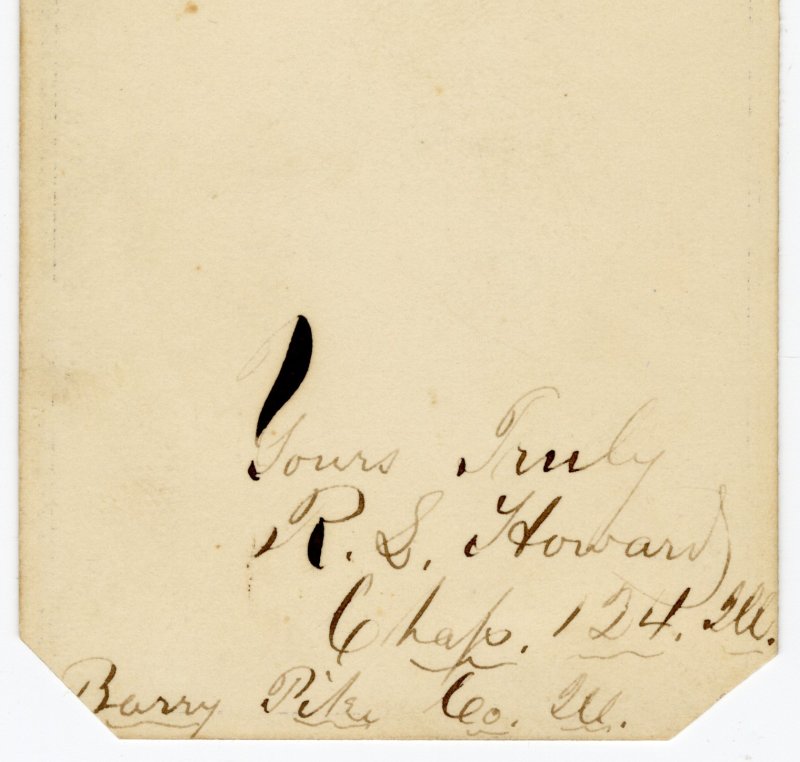 Yours Truly
R. L. Howard
Chap. 124. Ill.
Barry Pike Co. Ill.